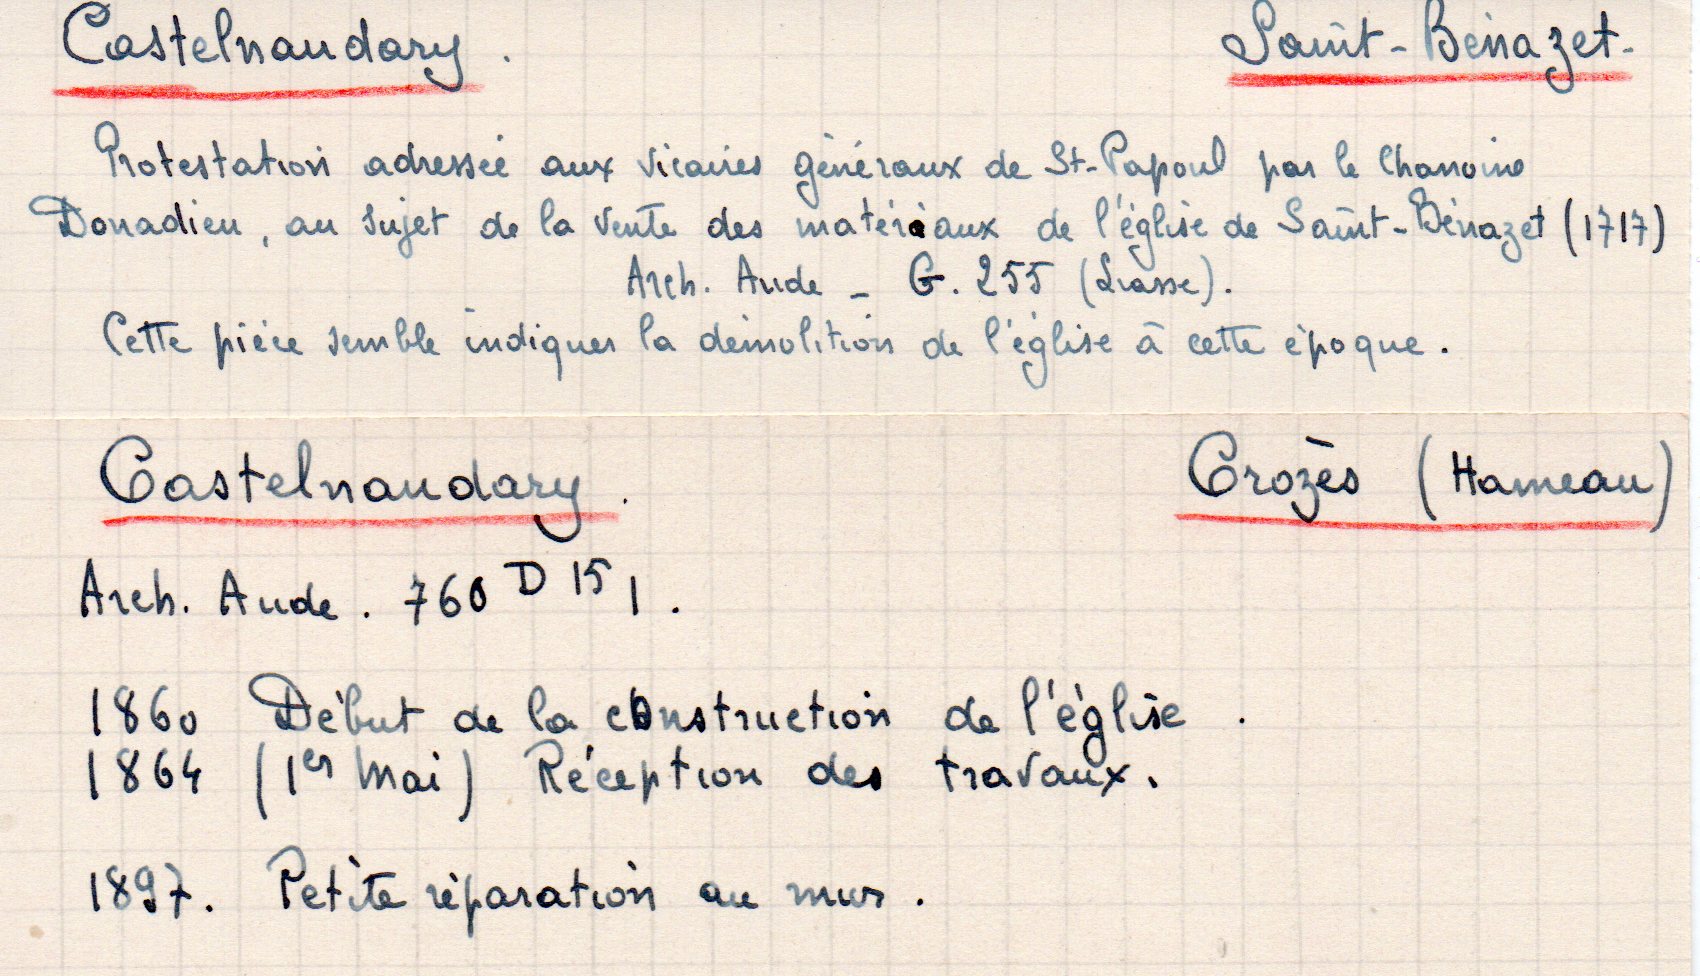 Castelnaudary. Saint-Bénazet.
Protestation adressée aux vicaires généraux de St-Papoul par le Chanoine
Donadieu, au sujet de la vente des matériaux de l'église de Saint-Bénazet (1717)
Arch. Aude - G. 255 (Liasse).
Cette pièce semble indiquer la démolition de l'église à cette époque.
Castelnaudary. Crozès (Hameau)
Arch. Aude. 760 D 15 1.
1860 Début de la construction de l'église.
1864 (1er Mai) Réception des travaux.
1897. Petite réparation au mur.